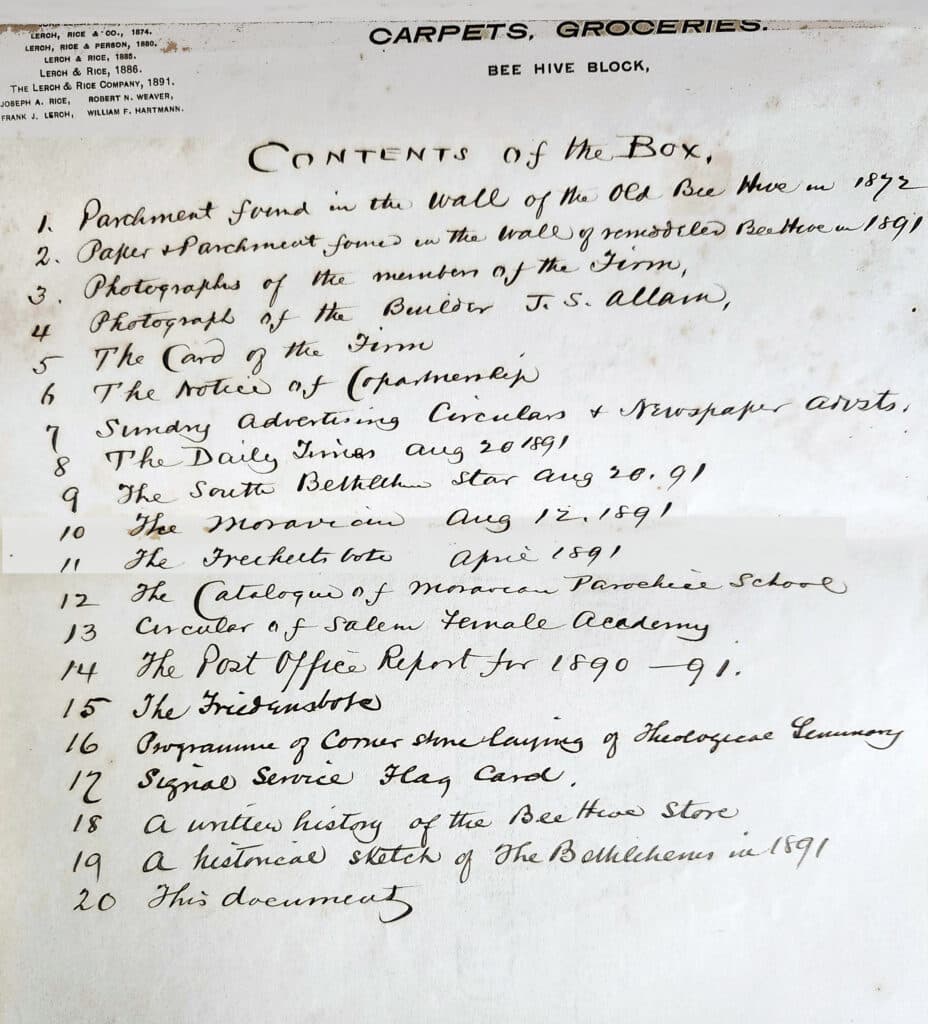 LERCH, RICE & CO., 1874.
LERCH, RICE & PERSON, 1880.
LERCH & RICE, 1885.
LERCH & RICE, 1886.
THE LERCH & RICE COMPANY, 1891.
JOSEPH A. RICE, ROBERT N. WEAVER,
FRANK J. LERCH, WILLIAM F. HARTMANN.
CARPETS, GROCERIES.
BEE HIVE BLOCK,
CONTENTS of the BOX.
1. Parchment found in the Wall of the Old Bee Hive in 1872
2. Paper & Parchment found in the Wall of remodeled BeeHive in 1891
3. Photographs of the members of the Firm,
4 Photograph of the Builder J. S. Allam,
5 The Card of the Firm
6 The Notice of Copartnership
7 Sundry Advertising Circulars & Newspaper Advsts.
8 The Daily Times Aug 20 1891
9 The South Bethlehem Star Aug 20. 91
10 The Moravian Aug 12. 1891
11 The April 1891
12 The Catalogue of Moravian Parochial School
13 Circular of Salem Female Academy
14 The Post Office Report for 1890 - 91.
15 The Friedensbote
16 Programme of Corner stone laying of Theological Seminary
17 Signal Service Flag Card.
18 A written history of the Bee Hive Store
19 A historical sketch of The Bethlehems in 1891
20 This document